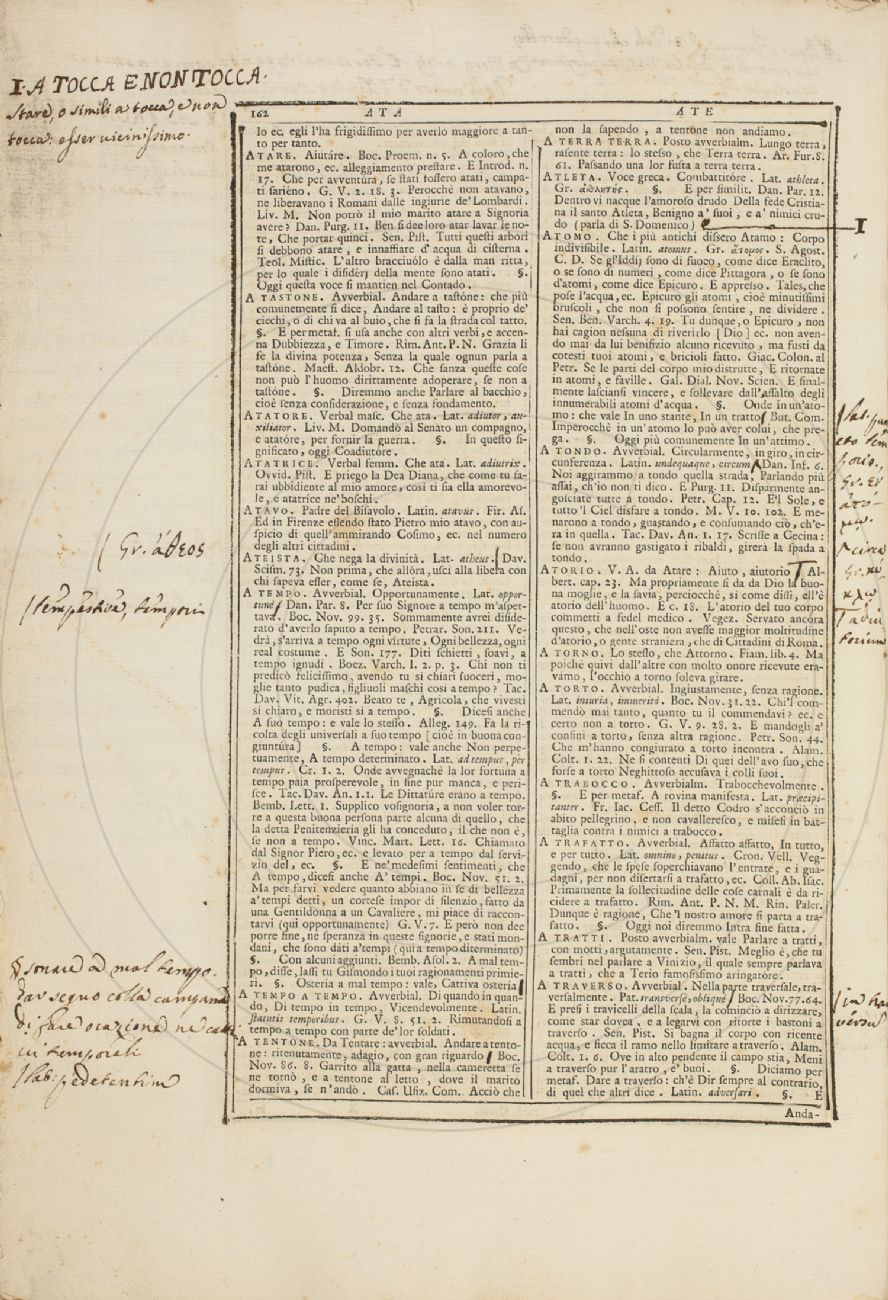 I. A TOCCA E NON TOCCA.
Stare, o simili a tocca, e non
tocca: esser vicinissimo.
162 ATA ATE
lo ec. egli l'ha frigidissimo per averlo maggiore a tan-
to per tanto.
ATARE. Aiutáre. Boc. Proem. n. 5. A coloro, che
me atarono, ec. alleggiamento prestare. E Introd. n.
17. Che per avventúra, se stati fossero atati, campa-
ti sariéno. G. V. 2. 18. 3. Perocchè non atavano,
ne liberavano i Romani dalle ingiurie de' Lombardi.
Liv. M. Non potrò il mio marito atare a Signoria
avere? Dan. Purg. 11. Ben si dee loro atar lavar le no-
te, Che portar quinci. Sen. Pist. Tutti questi arbori
si debbono atare, e innaffiare d'acqua di cisterna.
Teol. Mistic. L'altro bracciuólo è dalla man ritta,
per lo quale i disidérj della mente sono atati. §.
Oggi questa voce si mantien nel Contado.
A TASTONE. Avverbial. Andare a tastóne: che più
comunemente si dice, Andare al tasto: è proprio de'
ciechi, o di chi va al buio, che si fa la strada col tatto.
§. E per metaf. si usa anche con altri verbi, e accen-
na Dubbiezza, e Timore. Rim. Ant. P. N. Grazia li
fe la divina potenza, Senza la quale ognun parla a
tastóne. Maest. Aldobr. 12. Che sanza queste cose
non può l'huomo dirittamente adoperar, se non a
tastóne. §. Diremmo anche Parlare al bacchio,
cioè senza considerazione, e senza fondamento.
ATATORE. Verbal masc. Che ata. Lat. adiutor, au-
xiliator. Liv. M. Domandò al Senáto un compagno,
e atatóre, per fornir la guerra. §. In questo si-
gnificato, oggi Coadiutóre.
ATATRICE. Verbal femm. Che ata. Lat. adiutrix.
Ovvid. Pist. E priego la Dea Diana, che come tu sa-
rai ubbidiente al mio amore, così ti sia ella amorevo-
le, e atatrice ne' boschi.
ATAVO. Padre del Bisavolo. Latin. atavus. Fir. As.
Ed in Firenze essendo stato Pietro mio atavo, con au-
spicio di quell'ammirando Cosimo, ec. nel numero
degli altri cittadini.
ATEISTA. Che nega la divinità. Lat. atheus. Dav.
Scism. 73. Non prima, che allóra, usci alla libera con
chi sapeva esser, come se, Ateista.
( Gr. ἄθεος
A TEMPO. Avverbial. Opportunamente. Lat. oppor-
tunè Dan. Par. 8. Per suo Signore a tempo m'aspet-
tava. Boc. Nov. 99. 35. Sommamente avrei diside-
rato d'averlo saputo a tempo. Petrar. Son. 211. Ve-
drà, s'arriva a tempo ogni virtute, Ogni bellezza, ogni
real costume. E Son. 177. Diti schietti, soavi, a
tempo ignudi. Boez. Varch. l. 2. p. 3. Chi non ti
predicò felicissimo, avendo tu sì chiari suoceri, mo-
glie tanto pudica, figliuoli maschi così a tempo? Tac.
Dav. Vit. Agr. 402. Beato te, Agricola, che vivesti
sì chiaro, e moristi sì a tempo. §. Dicesi anche
A suo tempo: e vale lo stesso. Alleg. 149. Fa la ri-
colta degli universali a suo tempo [cioè in buona con-
giuntúra] §. A tempo: vale anche Non perpe-
tuamente, A tempo determinato. Lat. ad tempus, per
tempus. Cr. 1. 2. Onde avvegnachè la lor fortuna a
tempo paia prosperevole, in fine pur manca, e peri-
sce. Tac. Dav. An. 1. 1. Le Dittatúre erano a tempo.
Bemb. Lett. 1. Supplico vosignoria, a non voler tor-
re a questa buona persona parte alcuna di quello, che
la detta Penitenzieria gli ha conceduto, il che non è,
se non a tempo. Vinc. Mart. Lett. 16. Chiamato
dal Signor Piero, ec. e levato per a tempo dal servi-
zio del, ec. §. E ne' medesimi sentimenti, che
A tempo, dicesi anche A' tempi. Boc. Nov. 51. 2.
Ma per farvi vedere quanto abbiano in se di bellezza
a' tempi detti, un cortese impor di silenzio, fatto da
una Gentildonna a un Cavaliere, mi piace di raccon-
tarvi (qui opportunamente) G. V. 7. E però non dee
porre fine, ne speranza in queste signorie, e stati mon-
dani, che sono dati a' tempi (qui a tempo diterminato)
§. Con alcuni aggiunti. Bemb. Asol. 2. A mal tem-
po, disse, lasti tu Gismondo i tuoi ragionamenti primie-
ri. §. Osteria a mal tempo: vale, Cattiva osteria
§ sonare a mal tempo.
dar segno colla campana
A TEMPO A TEMPO. Avverbial. Di quando in quan-
do, Di tempo in tempo, Vicendevolmente. Latin.
statutis temporibus. G. V. 8. 51. 2. Rimutandosi a
tempo a tempo con parte de' lor soldati.
A TENTONE. Da Tentare: avverbial. Andare a tento-
ne: ritenutamente, adagio, con gran riguardo Boc.
Nov. 86. 8. Garrito alla gatta, nella cameretta se
ne tornò, e a tentone al letto, dove il marito
dormiva, se n'andò. Cas. Ufiz. Com. Acciò che
non la sapendo, a tentóne non andiamo.
A TERRA TERRA. Posto avverbialm. Lungo terra,
rasente terra: lo stesso, che Terra terra. Ar. Fur. 8.
61. Passando una lor fusta a terra terra.
ATLETA. Voce greca. Combattitóre. Lat. athleta.
Gr. ἀθλητής. §. E per similit. Dan. Par. 12.
Dentro vi nacque l'amoroso drudo Della fede Cristia-
na il santo Atleta, Benigno a' suoi, e a' nimici cru-
do (parla di S. Domenico)
I
ATOMO. Che i più antichi dissero Atamo: Corpo
indivisibile. Latin. atomus. Gr. ἄτομος. S. Agost.
C. D. Se gl'Iddij sono di fuoco, come dice Eraclito,
o se sono di numeri, come dice Pittagora, o se sono
d'atomi, come dice Epicuro. E appresso. Tales, che
pose l'acqua, ec. Epicuro gli atomi, cioè minutissimi
bruscoli, che non si possono sentire, ne dividere.
Sen. Ben. Varch. 4. 19. Tu dunque, o Epicuro, non
hai cagion nessuna di riverirlo [Dio] ec. non aven-
do mai da lui benifizio alcuno ricevuto, ma fusti da
cotesti tuoi atomi, e bricioli fatto. Giac. Colon. al
Petr. Se le parti del corpo mio distrutte, E ritornate
in atomi, e faville. Gal. Dial. Nov. Scien. E final-
mente lasciansi vincere, e sollevare dall'assalto degli
innumerabili atomi d'acqua. §. Onde in un' ato-
mo: che vale In uno stante, In un tratto But. Com.
Imperocchè in un'atomo lo può aver colui, che pre-
ga. §. Oggi più comunemente In un'attimo.
A TONDO. Avverbial. Circularmente, in giro, in cir-
cunferenza. Latin. undequaque, circum Dan. Inf. 6.
Noi aggirammo a tondo quella strada, Parlando più
assai, ch'io non ti dico. E Purg. 11. Disparmente an-
gosciate tutte a tondo. Petr. Cap. 12. E'l Sole, e
tutto 'l Ciel disfare a tondo. M. V. 10. 102. E me-
narono a tondo, guastando, e consumando ciò, ch'e-
ra in quella. Tac. Dav. An. 1. 17. Scrisse a Cecina:
se non avranno gastigato i ribaldi, girerà la spada a
tondo.
ATORIO. V. A. da Atare: Aiuto, aiutorio Al-
bert. cap. 23. Ma propriamente si da da Dio la buo-
na moglie, e la savia, perciocchè, si come dissi, ell'è
atorio dell'huomo. E c. 18. L'atorio del tuo corpo
commetti a fedel medico. Vegez. Servato ancóra
questo, che nell'oste non avesse maggior moltitudine
d'atorio, o gente straniera, che di Cittadini di Roma.
A TORNO. Lo stesso, che Attorno. Fiam. lib. 4. Ma
poichè quivi dall'altre con molto onore ricevute era-
vámo, l'occhio a torno soleva girare.
A TORTO. Avverbial. Ingiustamente, senza ragione.
Lat. iniuria, immeritò. Boc. Nov. 31. 22. Chi'l com-
mendò mai tanto, quanto tu il commendavi? ec. e
certo non a torto. G. V. 9. 28. 2. E mandogli a'
confini a torto, senza altra ragione. Petr. Son. 44.
Che m'hanno congiurato a torto incontra. Alam.
Colt. 1. 22. Ne si contenti Di quei dell'avo suo, che
forse a torto Neghittoso accusava i colli suoi.
A TRABOCCO. Avverbialm. Trabocchevolmente.
§. E per metaf. A rovina manifesta. Lat. præcipi-
tanter. Fr. Iac. Cess. Il detto Codro s'acconciò in
abito pellegrino, e non cavalleresco, e misesi in bat-
taglia contra i nimici a trabocco.
A TRAFATTO. Avverbial. Affatto affatto, In tutto,
e per tutto. Lat. omnino, penitus. Cron. Vell. Veg-
gendo, che le spese soperchiavano l'entrate, e i gua-
dagni, per non disertarsi a trafatto, ec. Coll. Ab. Isac.
Primamente la sollecitudine delle cose carnali è da ri-
cidere a trafatto. Rim. Ant. P. N. M. Rin. Paler.
Dunque è ragione, Che 'l nostro amore si parta a tra-
fatto. §. Oggi noi diremmo Intra fine fatta.
A TRATTI. Posto avverbialm. vale Parlare a tratti,
con motti, argutamente. Sen. Pist. Meglio è, che tu
sembri nel parlare a Vinizio, il quale sempre parlava
a tratti, che a Terio famosissimo aringatóre.
A TRAVERSO. Avverbial. Nella parte traversale, tra-
versalmente. Pat. transversè, obliquè Boc. Nov. 77. 64.
E presi i travicelli della scala, la cominciò a dirizzare,
come star dovea, e a legarvi con ritorte i bastoni a
traverso. Sen. Pist. Si bagna il corpo con ricente
acqua, e ficca il ramo nello limitare a traverso. Alam.
Colt. 1. 6. Ove in alto pendente il campo stia, Meni
a traverso pur l'aratro, e' buoi. §. Diciamo per
metaf. Dare a traverso: ch'è Dir sempre al contrario,
di quel che altri dice. Latin. adversari. §. E
Anda-